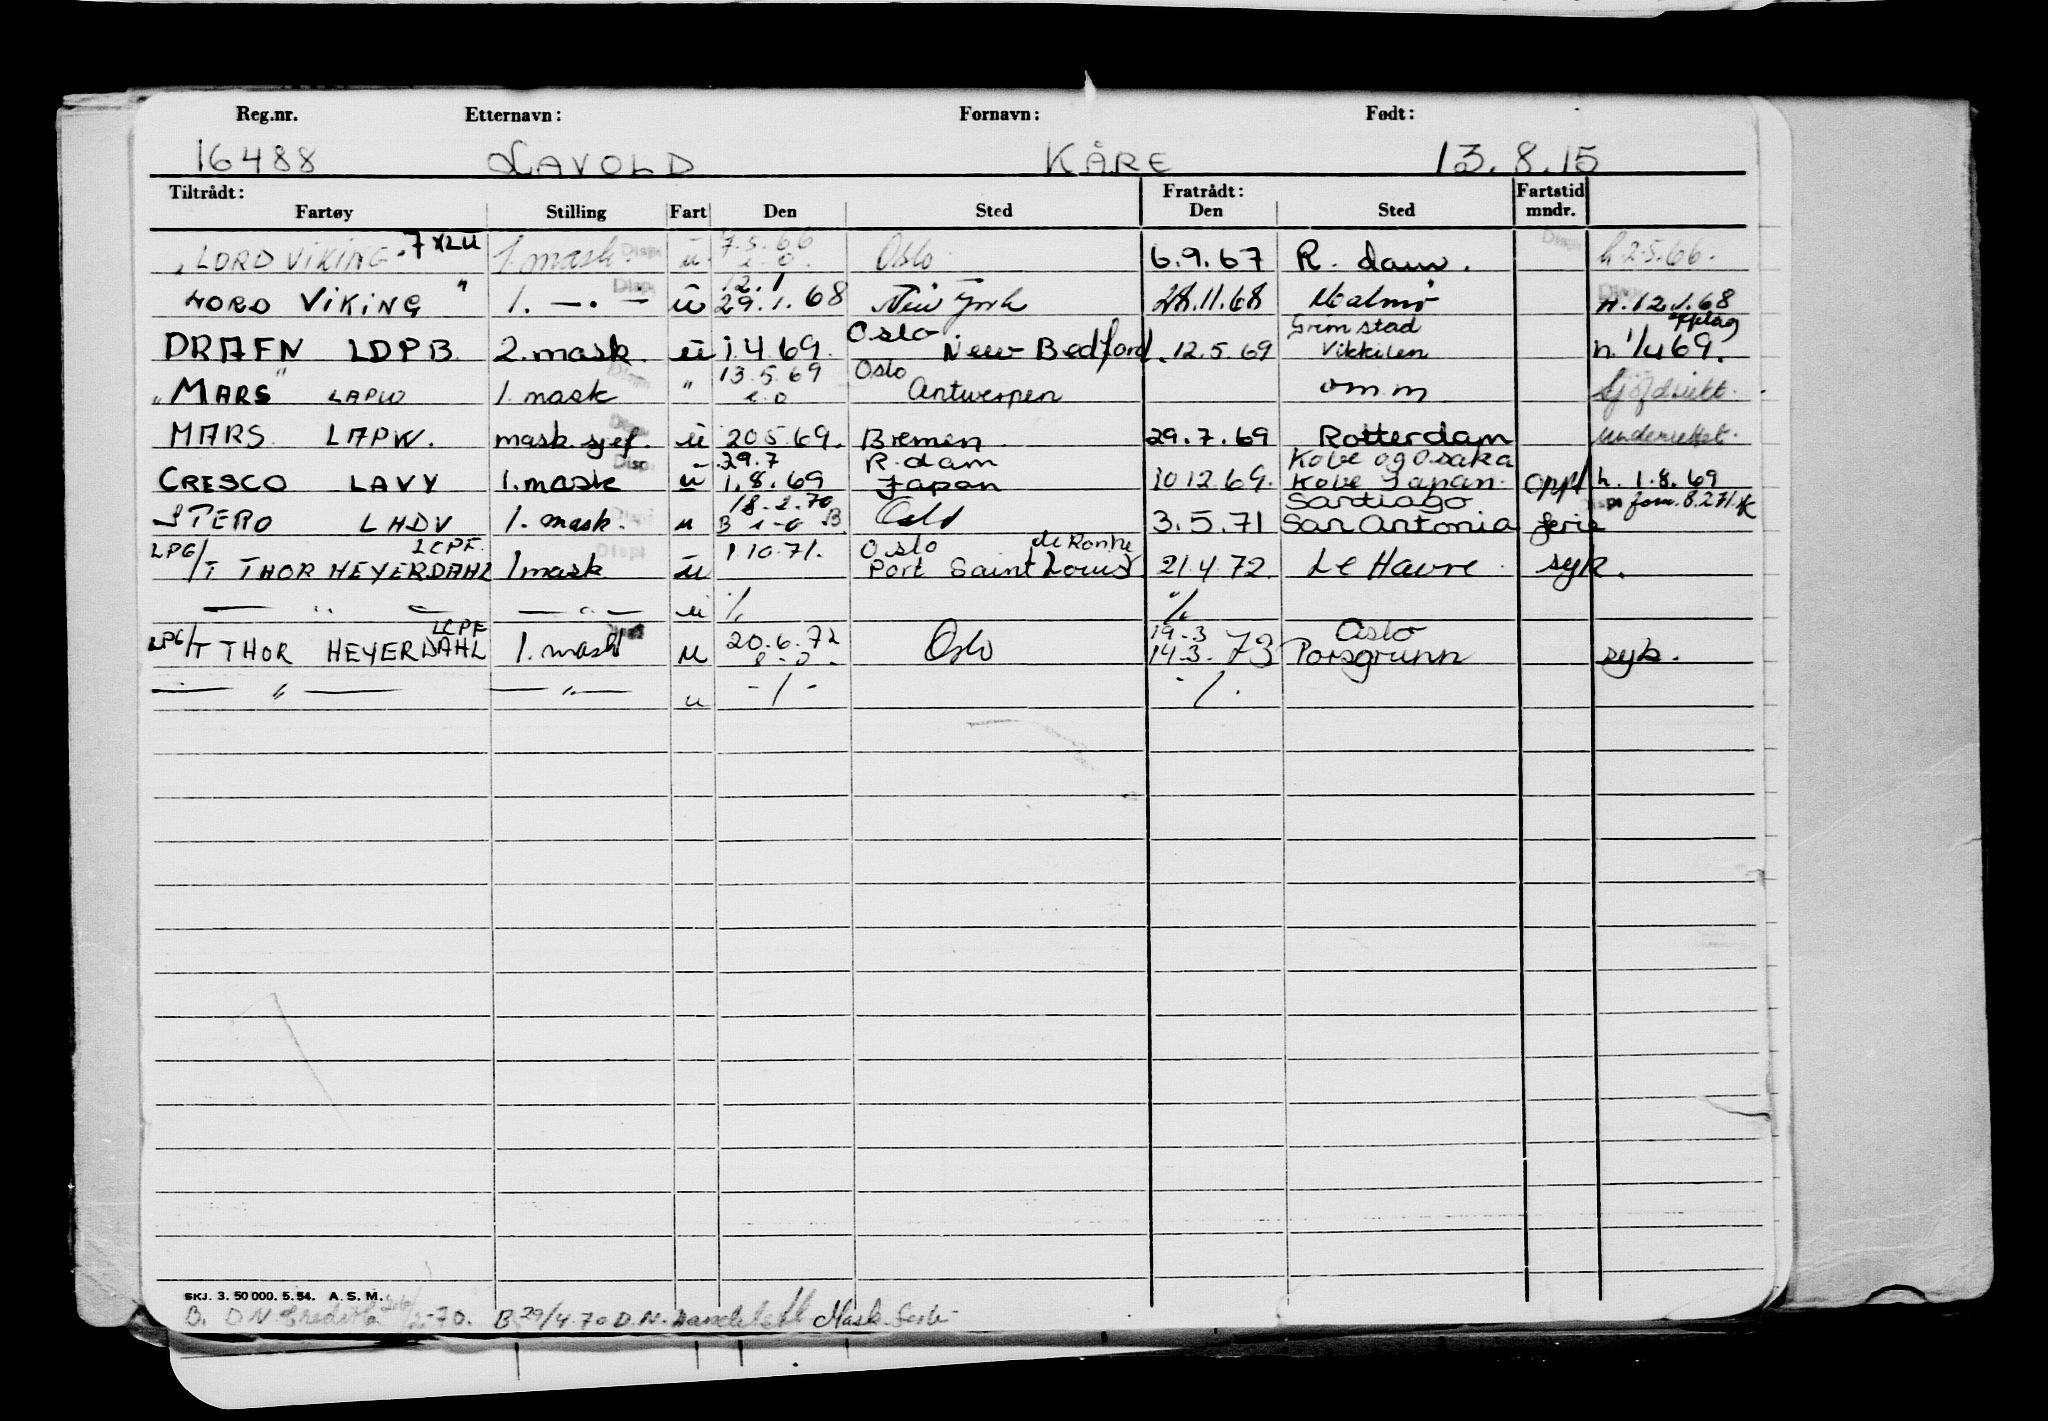 Reg.nr. Etternavn: Fornavn: Født:
16488 LAVOLD KÅRE 13.8.15
Tiltrådt: Fratrådt: Fartstid
Fartøy Stilling Fart Den Sted Den Sted mndr.
7.5.66
"LORD VIKING" 1. mask. u Oslo 6.9.67 R. dam. h. 2.5.66.
12.1
LORD VIKING " 1. — " — u 29.1.68 New York 28.11.68 Malmö h. 12.1.68
Oslo Grimstad opplag
DRAFN LDPB 2. mask. u 1.4.69. New Bedford. 12.5.69 Vikkilen h. 1/4 69.
13.5.69 Oslo
"MARS" LAPW 1. mask " Antwerpen omm
MARS LAPW. mask. sjef. u 20.5.69. Bremen 29.7.69 Rotterdam underrettet.
29.7 R. dam Kobe og Osaka
CRESCO LAVY 1. mask u 1.8.69 Japan 10.12.69. Kobe Japan. oppl h. 1.8.69
18.2.70 Santiago
STERO LHDV 1. mask. u Oslo 3.5.71 San Antonia ferie
LCPF 1.10.71. Oslo
LPG/T THOR HEYERDAHL 1 mask u Port Saint Louis 21.4.72. Le Havre. syk.
— " — — " — u
LCPF 19-3 Oslo
LPG/T THOR HEYERDAHL 1. mask u 20.6.72 Oslo 14-3. 73 Porsgrunn syk.
— " — — " — u - / - - / -
SKJ. 3. 50 000. 5. 54. A. S. M.
B. D.N. 70. B 29/4.70 D.N. Mask.